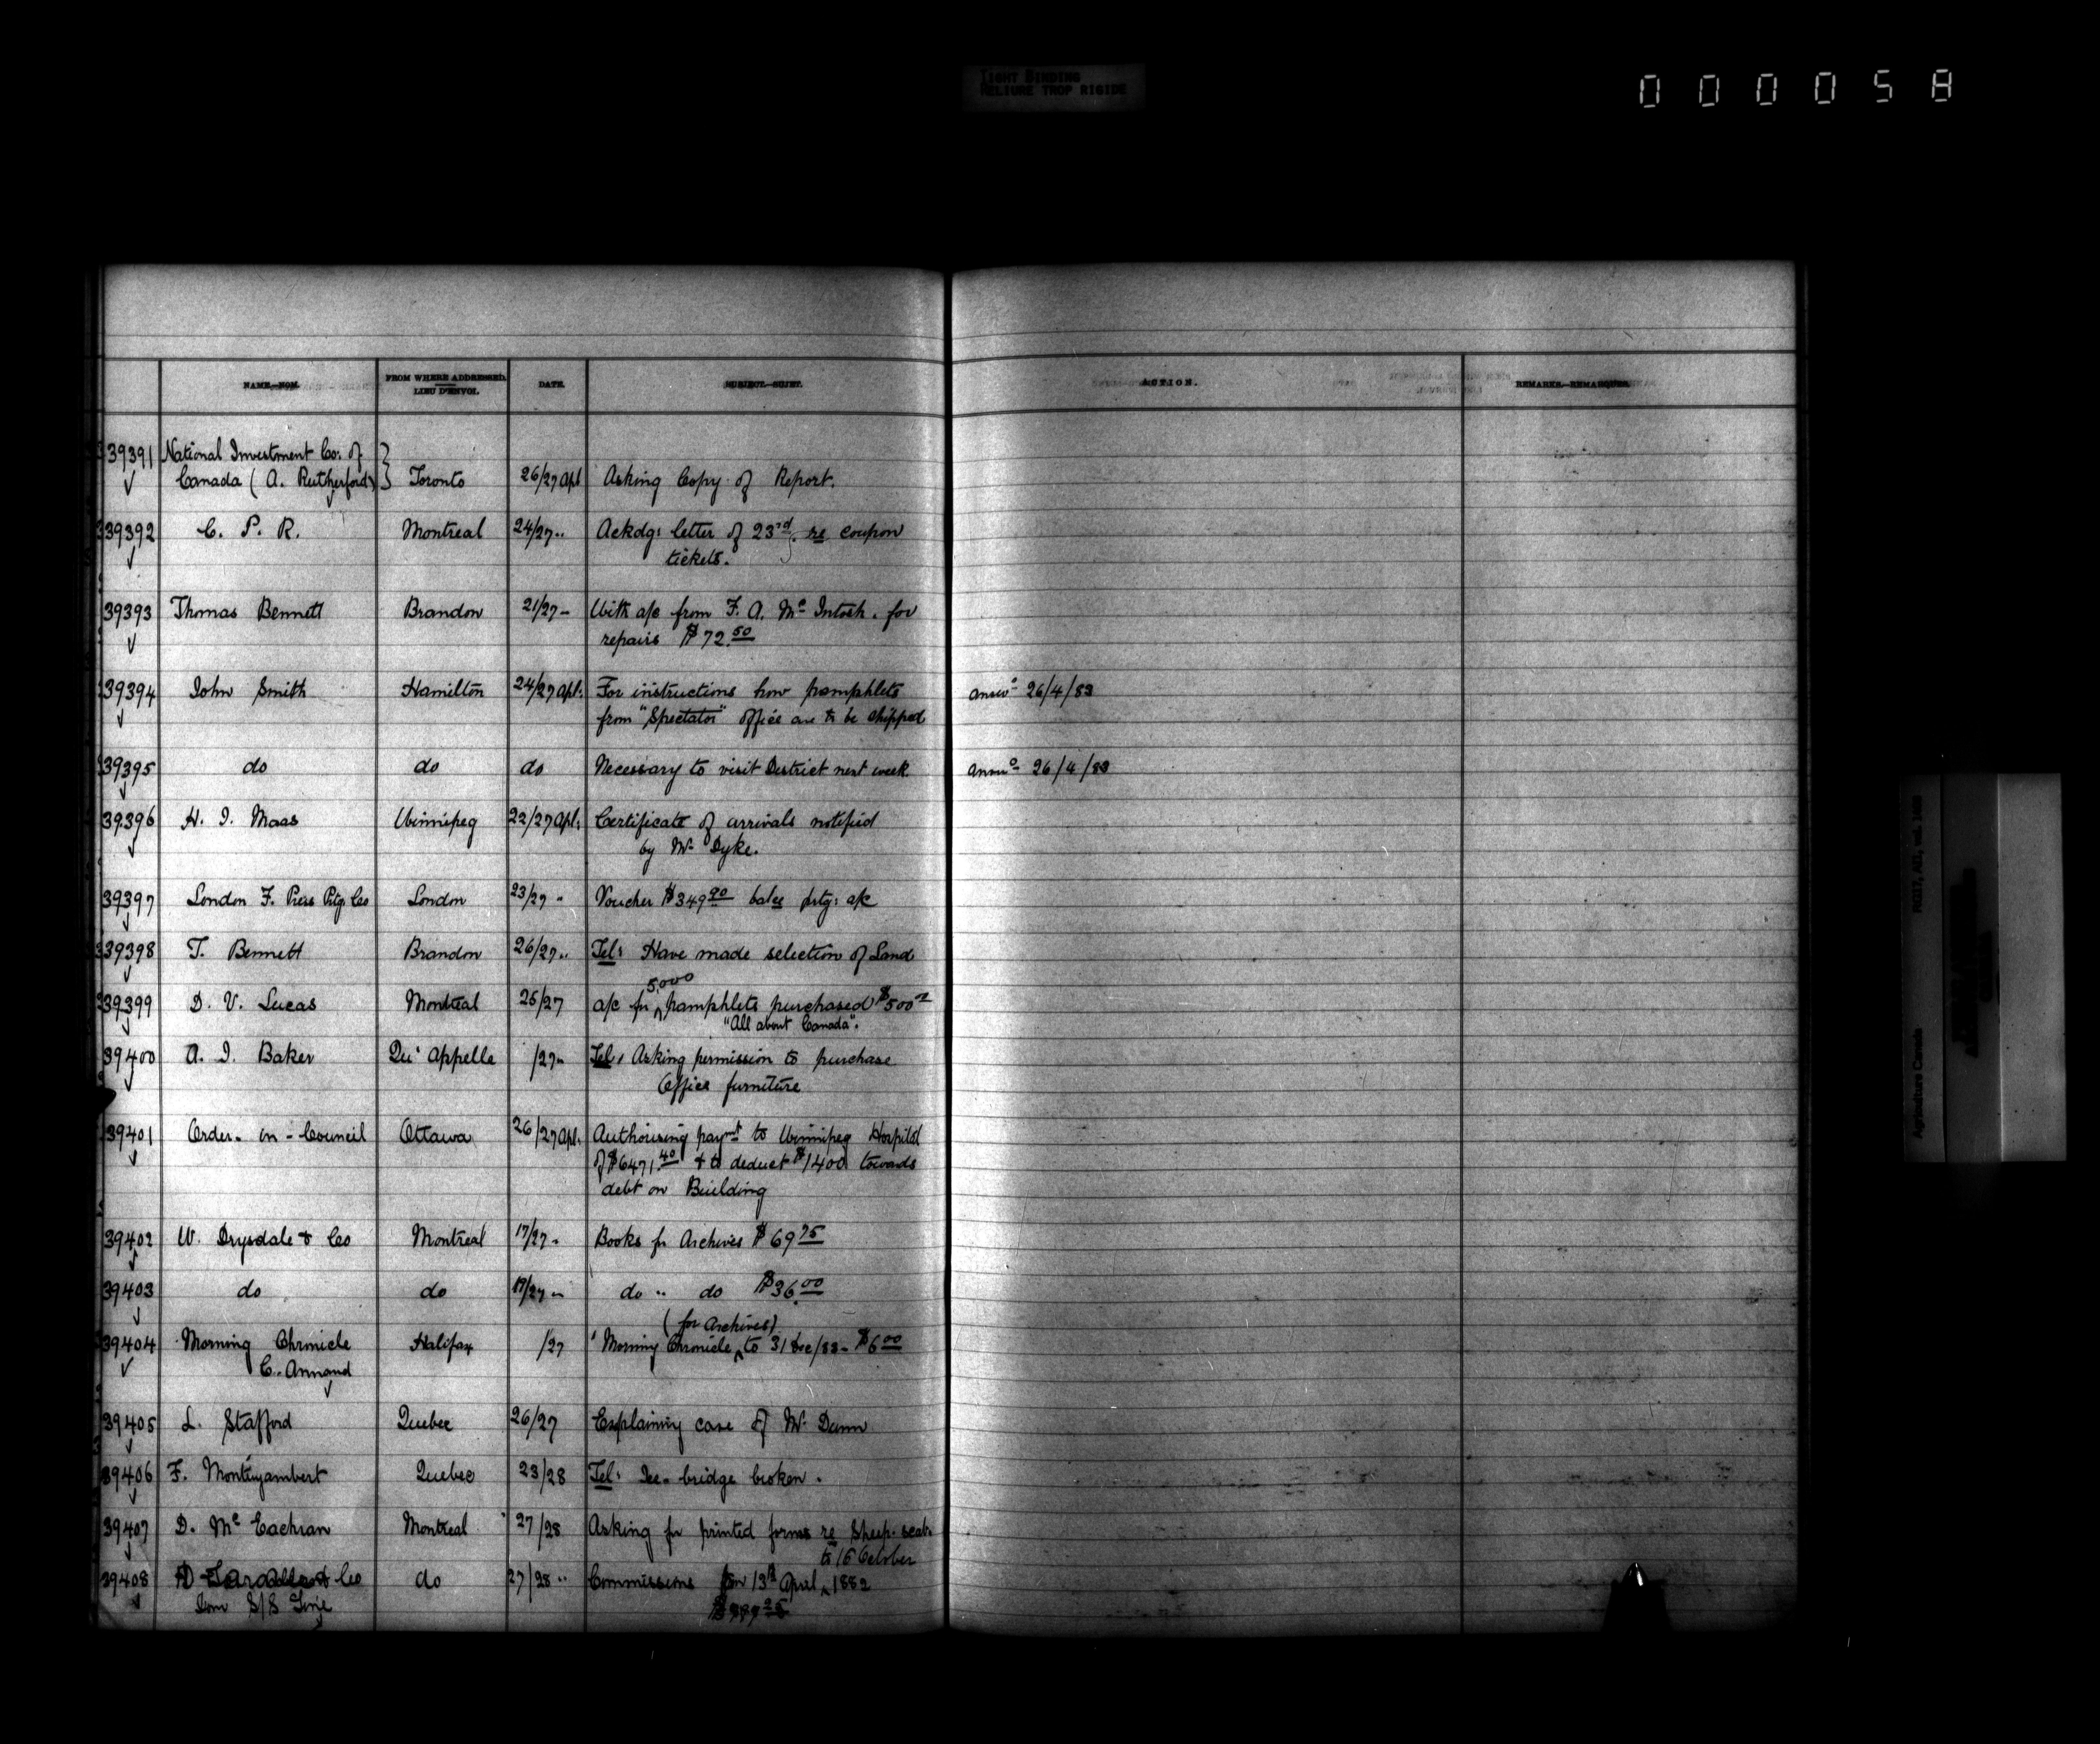 TIGHT BINDING
RELIURE TROP RIGIDE
000058
NAME.—NOM. FROM WHERE ADDRESSED. DATE. SUBJECT.—SUJET. ACTION. REMARKS.—REMARQUES.
LIEU D'ENVOI.
39391 National Investment Co. of
Canada (A. Rutherford) Toronto 26/27 Apl Asking Copy of Report.
39392 C. P. R. Montreal 24/27 " Ackdg: letter of 23rd. re coupon
tickets.
39393 Thomas Bennett Brandon 21/27 " With a/c from F. A. Mc Intosh. for
repairs $72.50
39394 John Smith Hamilton 24/27 Apl: For instructions how pamphlets answd 26/4/83
from "Spectator" office are to be shipped
39395 do do do Necessary to visit District next week answd 26/4/83
39396 H. I. Maas Winnipeg 22/27 Apl: Certificate of arrivals notified
by Mr Dyke.
39397 London F. Press Ptg. Co London 23/27 " Voucher $349.90 balce prtg: a/c
39398 T. Bennett Brandon 26/27 " Tel: Have made selection of Land
5,000
39399 D. V. Lucas Montreal 25/27 a/c for pamphlets purchased $500
"All about Canada".
39400 A. I. Baker Qu' Appelle /27 " Tel: Asking permission to purchase
Office furniture
39401 Order-in-Council Ottawa 26/27 Apl. Authorising paymt to Winnipeg Hospital
of $6471.40 & to deduct $1400 towards
debt on Building
39402 W. Drysdale & Co Montreal 17/27 " Books for Archives $69.75
39403 do do 19/27 " do " do $36.00
(for Archives)
39404 Morning Chronicle Halifax /27 "Morning Chronicle to 31 Dec/83 - $6.00
C. Annand
39405 L. Stafford Quebec 26/27 Explaining case of Mr Dunn
39406 F. Montizambert Quebec 23/28 Tel: Ice-bridge broken.
39407 D. Mc Eachran Montreal 27/28 Asking for printed forms re Sheep-scab.
to 16 October
39408 Co do 27/28 " Commissions from 13th April 1882
Dom S/S Line
RG17, AII, vol.
Agriculture Canada